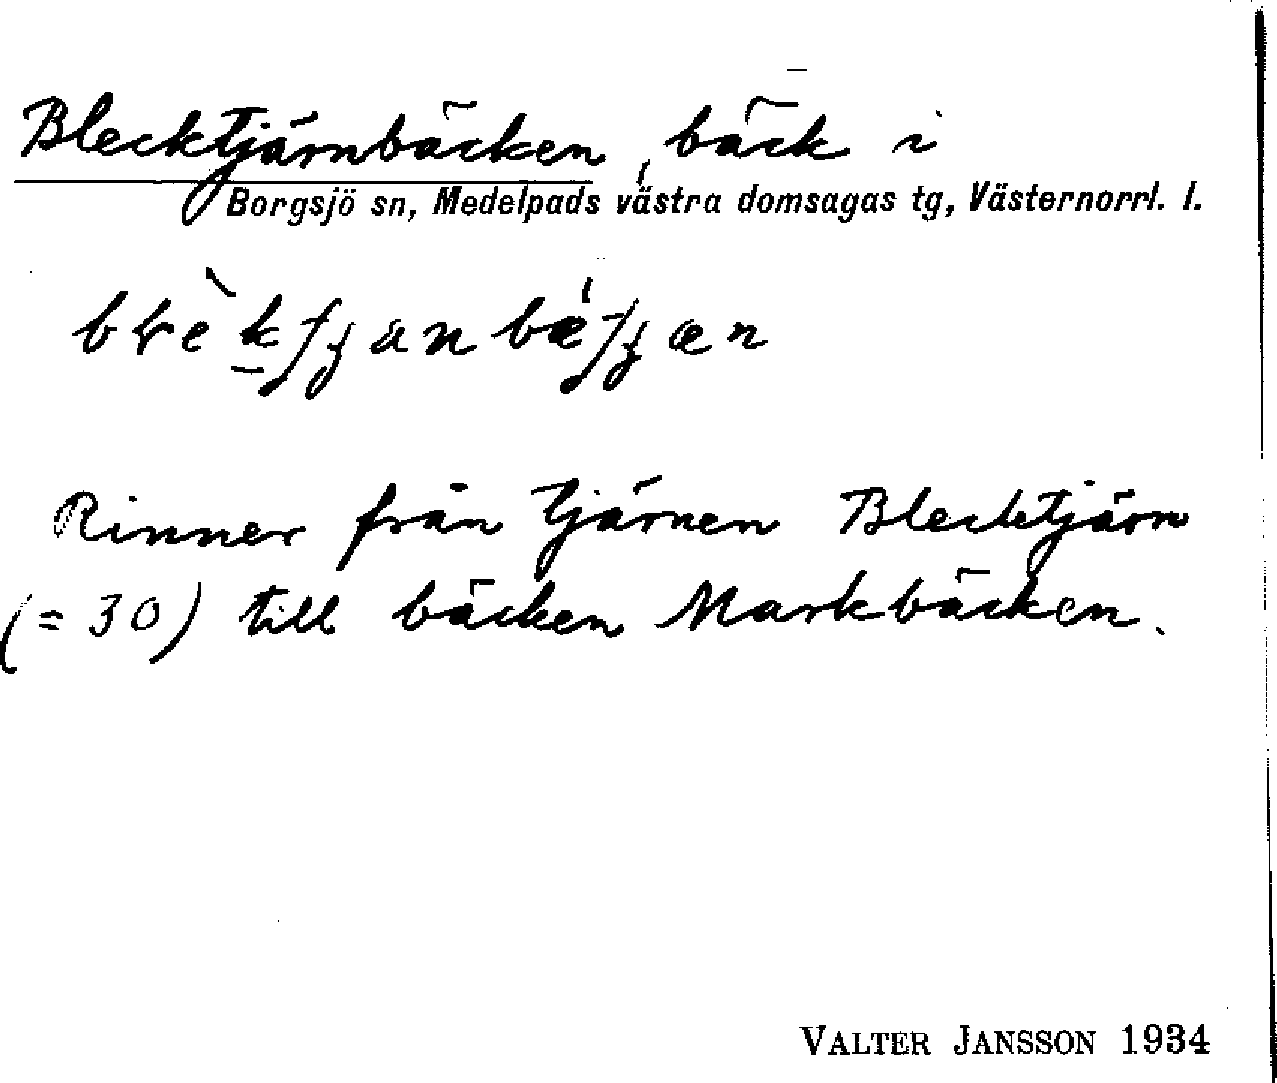 Blecktjärnbäcken, bäck i
Borgsjö sn, Medelpads västra domsagas tg, Västernorrl. l.
Rinner från tjärnen Blecktjärn
(= 30) till bäcken Markbäcken.
VALTER JANSSON 1934